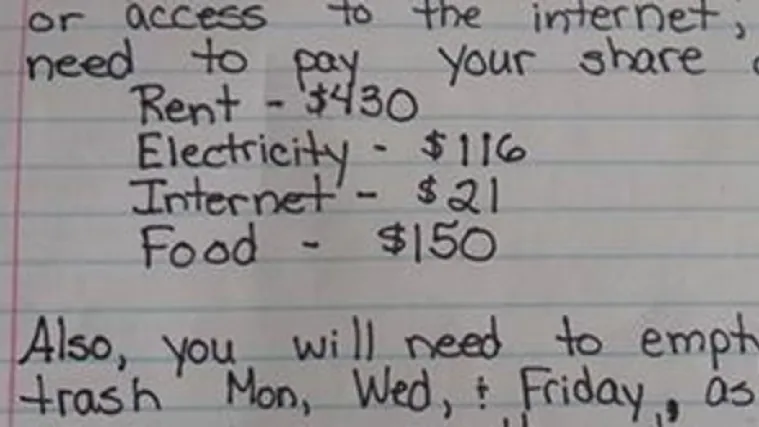 or access to the internet,
need to pay your share
Rent - $430
Electricity - $116
Internet - $21
Food - $150
Also, you will need to empt
trash Mon, Wed, & Friday, as